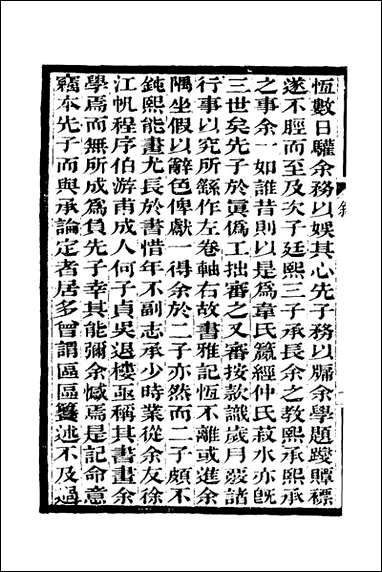 恆數日驩余務以娛其心先子務以牖余學題躞贉褾
遂不脛而至及次子廷熙三子承長余之教熙承熙承
之事余一如誰昔則以是爲韋氏籯經仲氏菽水亦旣
三世矣先子於眞僞工拙審之又審按款識歲月發諸
行事以究所繇作左卷軸右故書雅記恆不離或進余
隅坐假以辭色俾獻一得余於二子亦然而二子頗不
鈍熙能畫尤長於書惜年不副志承少時業從余友徐
江帆程序伯游甫成人何子貞吳退樓亟稱其書畫余
學焉而無所成爲負先子幸其能彌余憾焉是記命意
竊本先子而與承論定者居多曾謂區區籑述不及過
敘